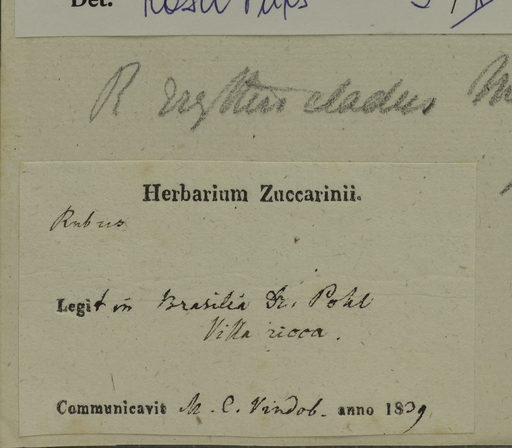 Det.
R erythrocladus M
Herbarium Zuccarinii.
Rubus
Legit in Brasilia Dr. Pohl
Villa ricca.
Communicavit M. C. Vindob. anno 1839